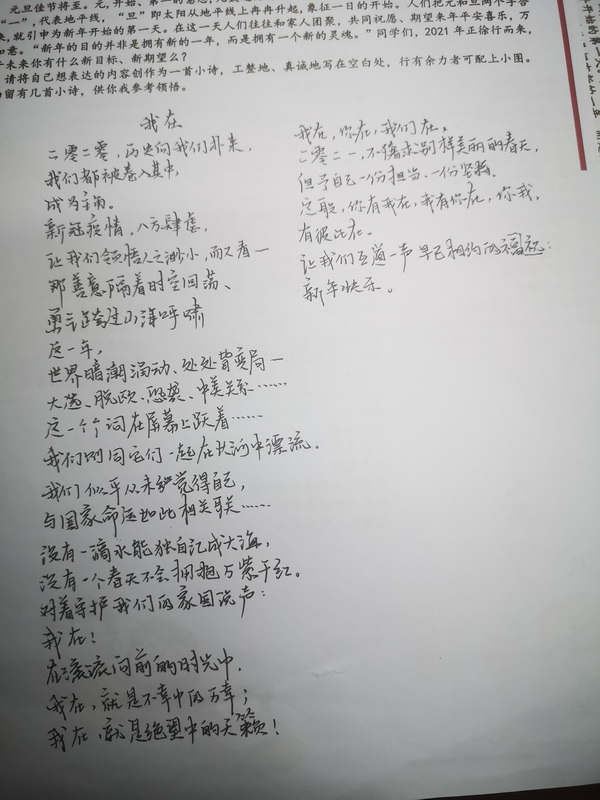 元旦佳节将至。元，开始、第一的意思，
"一"，代表地平线，"旦"即太阳从地平线上冉冉升起，象征一日的开始。人们把元和旦两个字合
，就引申为新年开始的第一天。在这一天人们往往和家人团聚，共同祝愿、期望来年平安喜乐，万
如意。"新年的目的并非是拥有新的一年，而是拥有一个新的灵魂。"同学们，2021年正徐行而来，
未来你有什么新目标、新期望么？
请将自己想表达的内容创作为一首小诗，工整地、真诚地写在空白处，行有余力者可配上小图。
留有几首小诗，供你我参考领悟。
我在
二零二零，历史向我们扑来，
我们都被卷入其中，
成为主角。
新冠疫情，八方肆虐，
让我们领悟人之渺小，而又看一
那善意隔着时空回荡、
勇气跨过山海呼啸
这一年，
世界暗潮涌动、处处皆变局—
大选、脱欧、恐袭、中美关系……
这一个个词在屏幕上跃着……
我们则同它们一起在长河中漂流。
我们似乎从未觉得自己，
与国家命运如此相关联……
没有一滴水能独自汇成大海，
没有一个春天不会拥抱万紫千红。
对着守护我们的家国说声：
我在！
在滚滚向前的时光中，
我在，就是不幸中的万幸；
我在，就是绝望中的天籁！
我在，你在，我们在。
二零二一，不偏求别样美丽的春天，
但予自己一份担当、一份坚持。
这职，你有我在，我有你在，你我，
有彼此在。
让我们互道一声早已相约的祝福：
新年快乐。